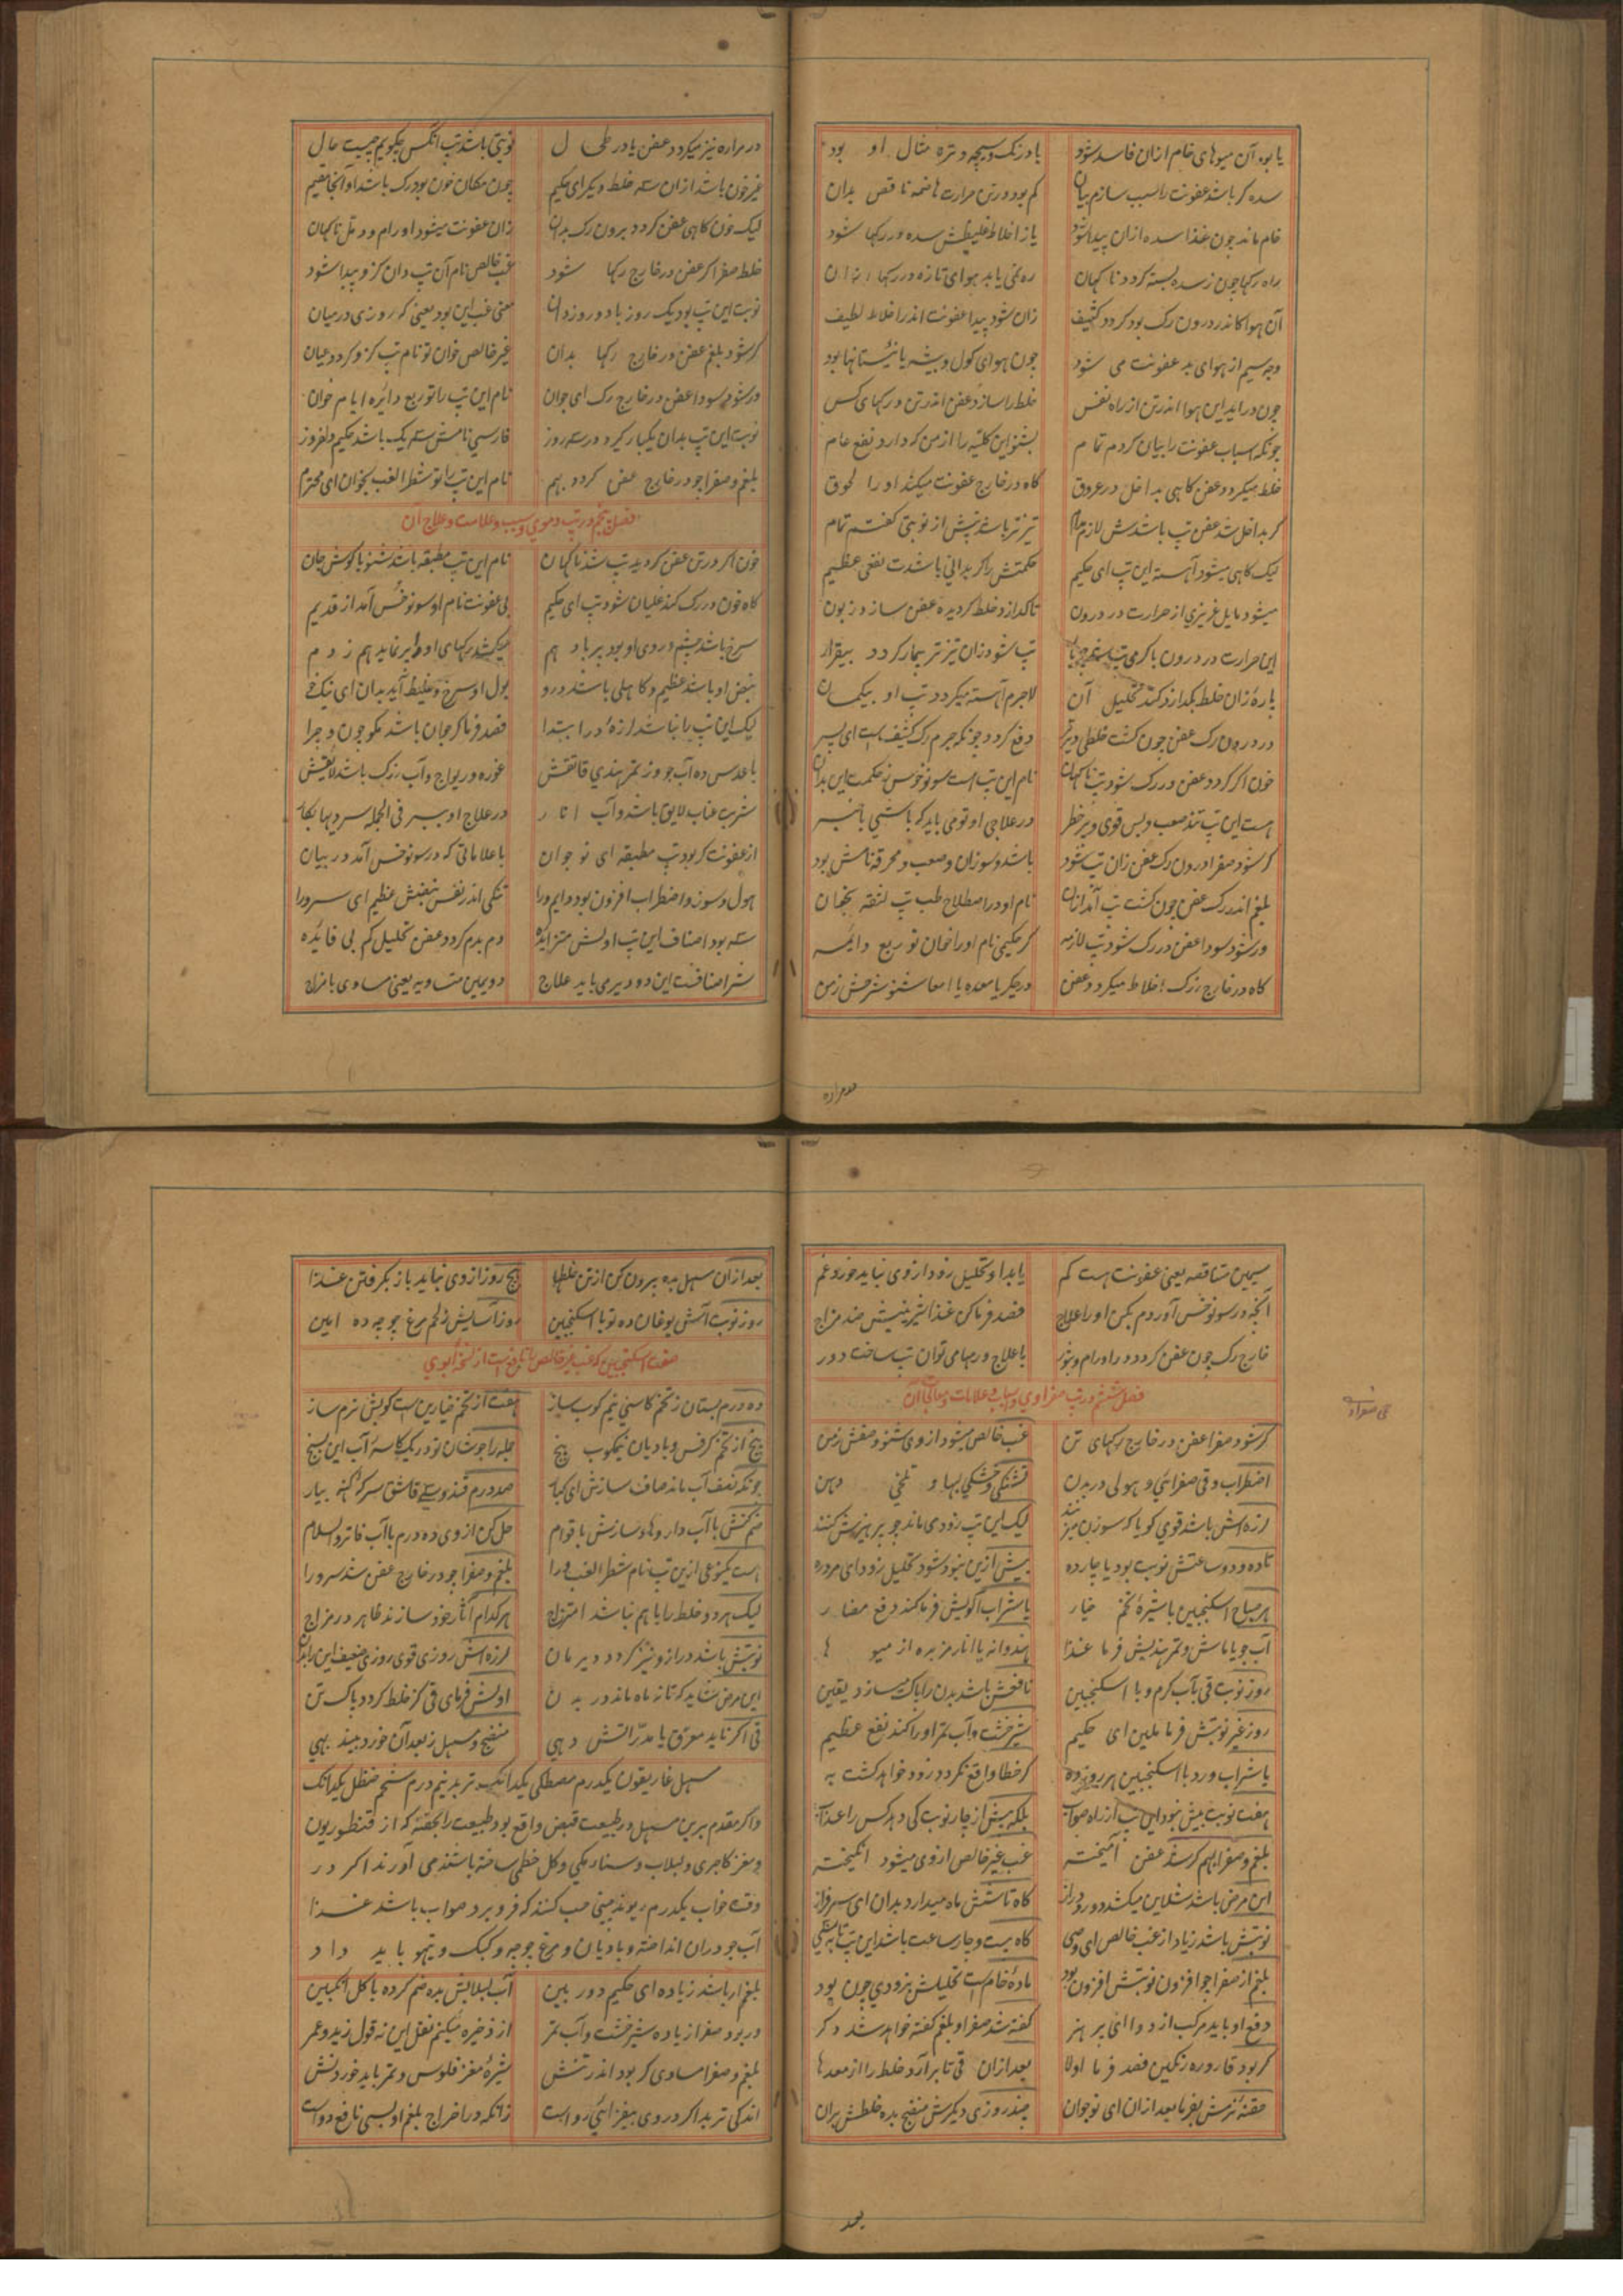 یا بود آن میوهای خام ازان فاسد شود یا درنک و سیچه و تره مثال او بود
سده کر باشد عفونت را سبب سازم بیان کم بود در تن حرارت هاضمه ناقص بدان
خام ماند چون غذا سده ازان پیدا شود یا ز اخلاط غلیظش سده در رکها شود
راه رکها چون ز سده بسته کردد ناکهان ره نمی یابد هوای تازه در رکها
آن هوا کاندر درون رک بود کردد کثیف زان شود پیدا عفونت اندر اخلاط لطیف
وجه سیم از هوای بد عفونت می شود چون هوای کول و بیشه یا نیستانها بود
چون در اید این هوا اندر تن از راه نفس خلط را سازد عفن اندر تن و رکهای کس
چونکه اسباب عفونت را بیان کردم تمام بشنو این کلیه را از من که دارد نفع عام
خلط میکردد عفن کاهی بداخل در عروق کاه در خارج عفونت میکند او را لحوق
کر بداخل شد عفن تپ باشدش لازم تیزتر باشد تپش از نوبتی کفتم تمام
لیک کاهی میشود آهسته این تپ ای حکیم حکمتش را کر بدانی باشدت نفعی عظیم
میشود مایل غریزی از حرارت در درون تا کدازد خلط کردیده عفن سازد زبون
این حرارت در درون با کرمی تپ تپ شود زان تیزتر بیمار کردد بیقرار
پارهٔ زان خلط بکدازد کند تحلیل آن لاجرم آهسته میکردد تپ او بیکمان
در درون رک عفن چون کشت خلطی دیرتر دفع کردد چونکه جرم رک کثیفست ای پسر
خون اکر کردد عفن در رک شود تپ ناکهان نام این تپ هست سونوخس ز حکمت این بدان
هست این تپ تند صعب و بس قوی و پرخطر در علاج او تو می باید که باشی باخبر
کر شود صفرا درون رک عفن زان تپ شود باشد و سوزان و صعب و محرقه نامش بود
بلغم اندر رک عفن چون کشت تپ آمد ازان نام او در اصطلاح طب تپ لثقه بخوان
ور شود سودا عفن در رک شود تپ لازمه کر حکیمی نام او را خوان تو ربع دایمه
کاه در خارج ز رک اخلاط میکردد عفن در جکر یا معده یا امعا شنو شرحش ز من
در مراره
در مراره نیز میکردد عفن یا در طحال نوبتی باشد تپ آنکس بکویم چیست حال
غیر خون باشد ازان سه خلط دیکر ای حکیم چون مکان خون بود رک باشد او آنجا مقیم
لیک خون کاهی عفن کردد برون رک بدان زان عفونت میشود اورام و دمل ناکهان
خلط صفرا کر عفن در خارج رکها شود غب خالص نام آن تپ دان کزو پیدا شود
نوبت این تپ بود یک روز باد و روز دان معنی غب این بود یعنی که روزی در میان
کر شود بلغم عفن در خارج رکها بدان غیر خالص خوان تو نام تپ کزو کردد عیان
ور شود سودا عفن در خارج رک ای جوان نام این تپ را تو ربع دائره ایام خوان
نوبت این تپ بدان یکبار کیرد در سه روز فارسی نامش سه یک باشد حکیم دلفروز
بلغم و صفرا چو در خارج عفن کردد بهم نام این تپ را تو شطر الغب بخوان ای محترم
فصل پنجم در تپ دموی و سبب و علامت و علاج آن
خون اکر در تن عفن کردید تپ شد ناکهان نام این تپ مطبقه باشد شنو با کوش جان
کاه خون در رک کند غلیان شود تپ ای حکیم بی عفونت نام او سونوخس آمد از قدیم
سرخ باشد چشم و روی او بود پر باد هم میکشد رکهای او را بر نماید هم ز دم
نبض او باشد عظیم و کاهلی باشد درو بول او سرخ و غلیظ آید بدان ای نیک خو
لیک این تپ را نباشد لرزهٔ در ابتدا فصد فرما کر جوان باشد مکو چون و چرا
با عدس ده آب جو وز تمر هندی قاتقش غوره و ریواج و آب زرک باشد لایقش
شربت عناب لایق باشد و آب انار در علاج او ببر فی الجمله سردیها بکار
از عفونت کر بود تپ مطبقه ای نوجوان با علاماتی که در سونوخس آمد در بیان
هول و سوز و اضطراب افزون بود دایم ورا تنکی اندر نفس نبضش عظیم ای سرورا
سه بود اصناف این تپ اولش متزایده دم بدم کردد عفن تحلیل کم بی فائده
شر اصنافست این دو دیری باید علاج دویمین متساویه یعنی مساوی با مزاج
سیمین متناقصه یعنی عفونت هست کم یابد او تحلیل زود از وی نباید خورد غم
آنچه در سونوخس آوردم بکن او را علاج فصد فرما کن غذا شیرینیش ضد مزاج
خارج رک چون عفن کردد دراورام و بثور با علاج ورمها می توان تپ ساخت دور
فصل ششم در تپ صفراوی و اسباب و علامات و معالجات آن
کر شود صفرا عفن در خارج رکهای تن غب خالص میشود از وی شنو وصفش ز من
اضطراب و قی صفرائی و هولی در بدن تشنکی و خشکی لبها و تلخی دهن
لرزه اش باشد قوی کویا که سوزن میزنند لیک این تپ زود می ماند چو پرهیزش کنند
تا ده و دو ساعتش نوبت بود یا چارده بیش ازین نبود شود تحلیل زود ای مرد ره
هر صباح اسکنجبین با شیرهٔ تخم خیار یا شراب آلویش فرما کند دفع مضار
آب جو با ماش و تمر هندیش فرما غذا هندوانه یا انار مز بره از میوها
روز نوبت قی بآب کرم و با اسکنجبین نافعش باشد بدن را پاک میسازد یقین
روز غیر نوبتش فرما ملین ای حکیم شیرخشت و آب تمر او را کند نفع عظیم
یا شراب ورد با اسکنجبین هر روز ده کر خطا واقع نکردد زود خواهد کشت به
هفت نوبت بیش نبود این تپ از راه صواب بلکه بیش از چار نوبت کی دهد کس را عذاب
بلغم و صفرا بهم کر شد عفن آمیخته غب غیر خالص از وی میشود انکیخته
این مرض باشد شلاین میکشد دور و دراز کاه تا شش ماه میدارد بدان ای سرفراز
نوبتش باشد زیاد از غب خالص ای وصی کاه بیست و چار ساعت باشد این تپ
بلغم از صفرا چو افزون نوبتش افزون بود مادهٔ خامست تحلیلش بزودی چون بود
دفع او باید مرکب از دوا ای پر هنر کفته شد صفرا و بلغم کفته خواهد شد دکر
کر بود قاروره رنکین فصد فرما اولا بعد ازان قی تا برآرد خلط را از معدها
حقنهٔ نرمش بفرما بعد ازان ای نوجوان چند روزی دیکرش منضج بده خلطش بران
بعد
بعد ازان مسهل بده بیرون کن از تن خلطها پنج روز از وی نباید باز بکرفتن غذا
روز نوبت آش یوغان ده تو با اسکنجبین روز آسایش ز لحم مرغ جوجه ده ببین
صفت اسکنجبین که غب غیر خالص را نافعست از نسخه ابوی
ده درم بستان ز تخم کاسنی نیم کوب ساز هفت از تخم خیارین است کوبش نرم ساز
پنج از تخم کرفس و بادیان نیمکوب پنج جمله را جوشان تو در یک کاسهٔ آب این بسنج
چونکه نصف آب ماند صاف سازش ای کبار صد درم قند و سی قاشق سرکهٔ کهنه بیار
ضم کنش با آب داروها و سازش با قوام حل کن از وی ده درم با آب فاتر والسلام
هست یکنوعی ازین تپ نام شطر الغب ورا بلغم و صفرا چو در خارج عفن شد سرورا
لیک هر دو خلط را با هم نباشد امتزاج هر کدام آثار خود سازند ظاهر در مزاج
نوبتش باشد دراز و نیز کردد دیرمان لرزه اش روزی قوی روزی ضعیف این را بدان
این مرض شاید که تا نه ماه ماند در بدن اولش فرمای قی کز خلط کردد پاک تن
قی اکر ناید معرق یا مدر آتش دهی منضج و مسهل ز بعد آن خورد بیند بهی
مسهل غاریقون یکدرم مصطکی یکدانک تربد نیم درم شحم حنظل یکدانک
و اکر مقدم برین مسهل در طبیعت قبض واقع بود طبیعت را بحقنه که از قنطوریون
و مغز کاجری و لبلاب و سنا مکی و کل خطمی ساخته باشند می آورند اکر در
وقت خواب یکدرم ریوند چینی حب کنند که فرو برد صواب باشد غذا
آب جو دران انداخته و بادیان و مرغ جوجه و کبک و تیهو باید داد
بلغم ار باشد زیاده ای حکیم دوربین آب لبلابش بده ضم کرده با کل انکبین
ور بود صفرا زیاده شیرخشت و آب تمر از ذخیره میکنم نقل این نه قول زید و عمر
بلغم و صفرا مساوی کر بود اندر تنش شیرهٔ مغز فلوس و تمر باید خوردنش
اندکی تربد اکر در وی بیفزائی رواست زانکه در اخراج بلغم او بسی نافع دواست